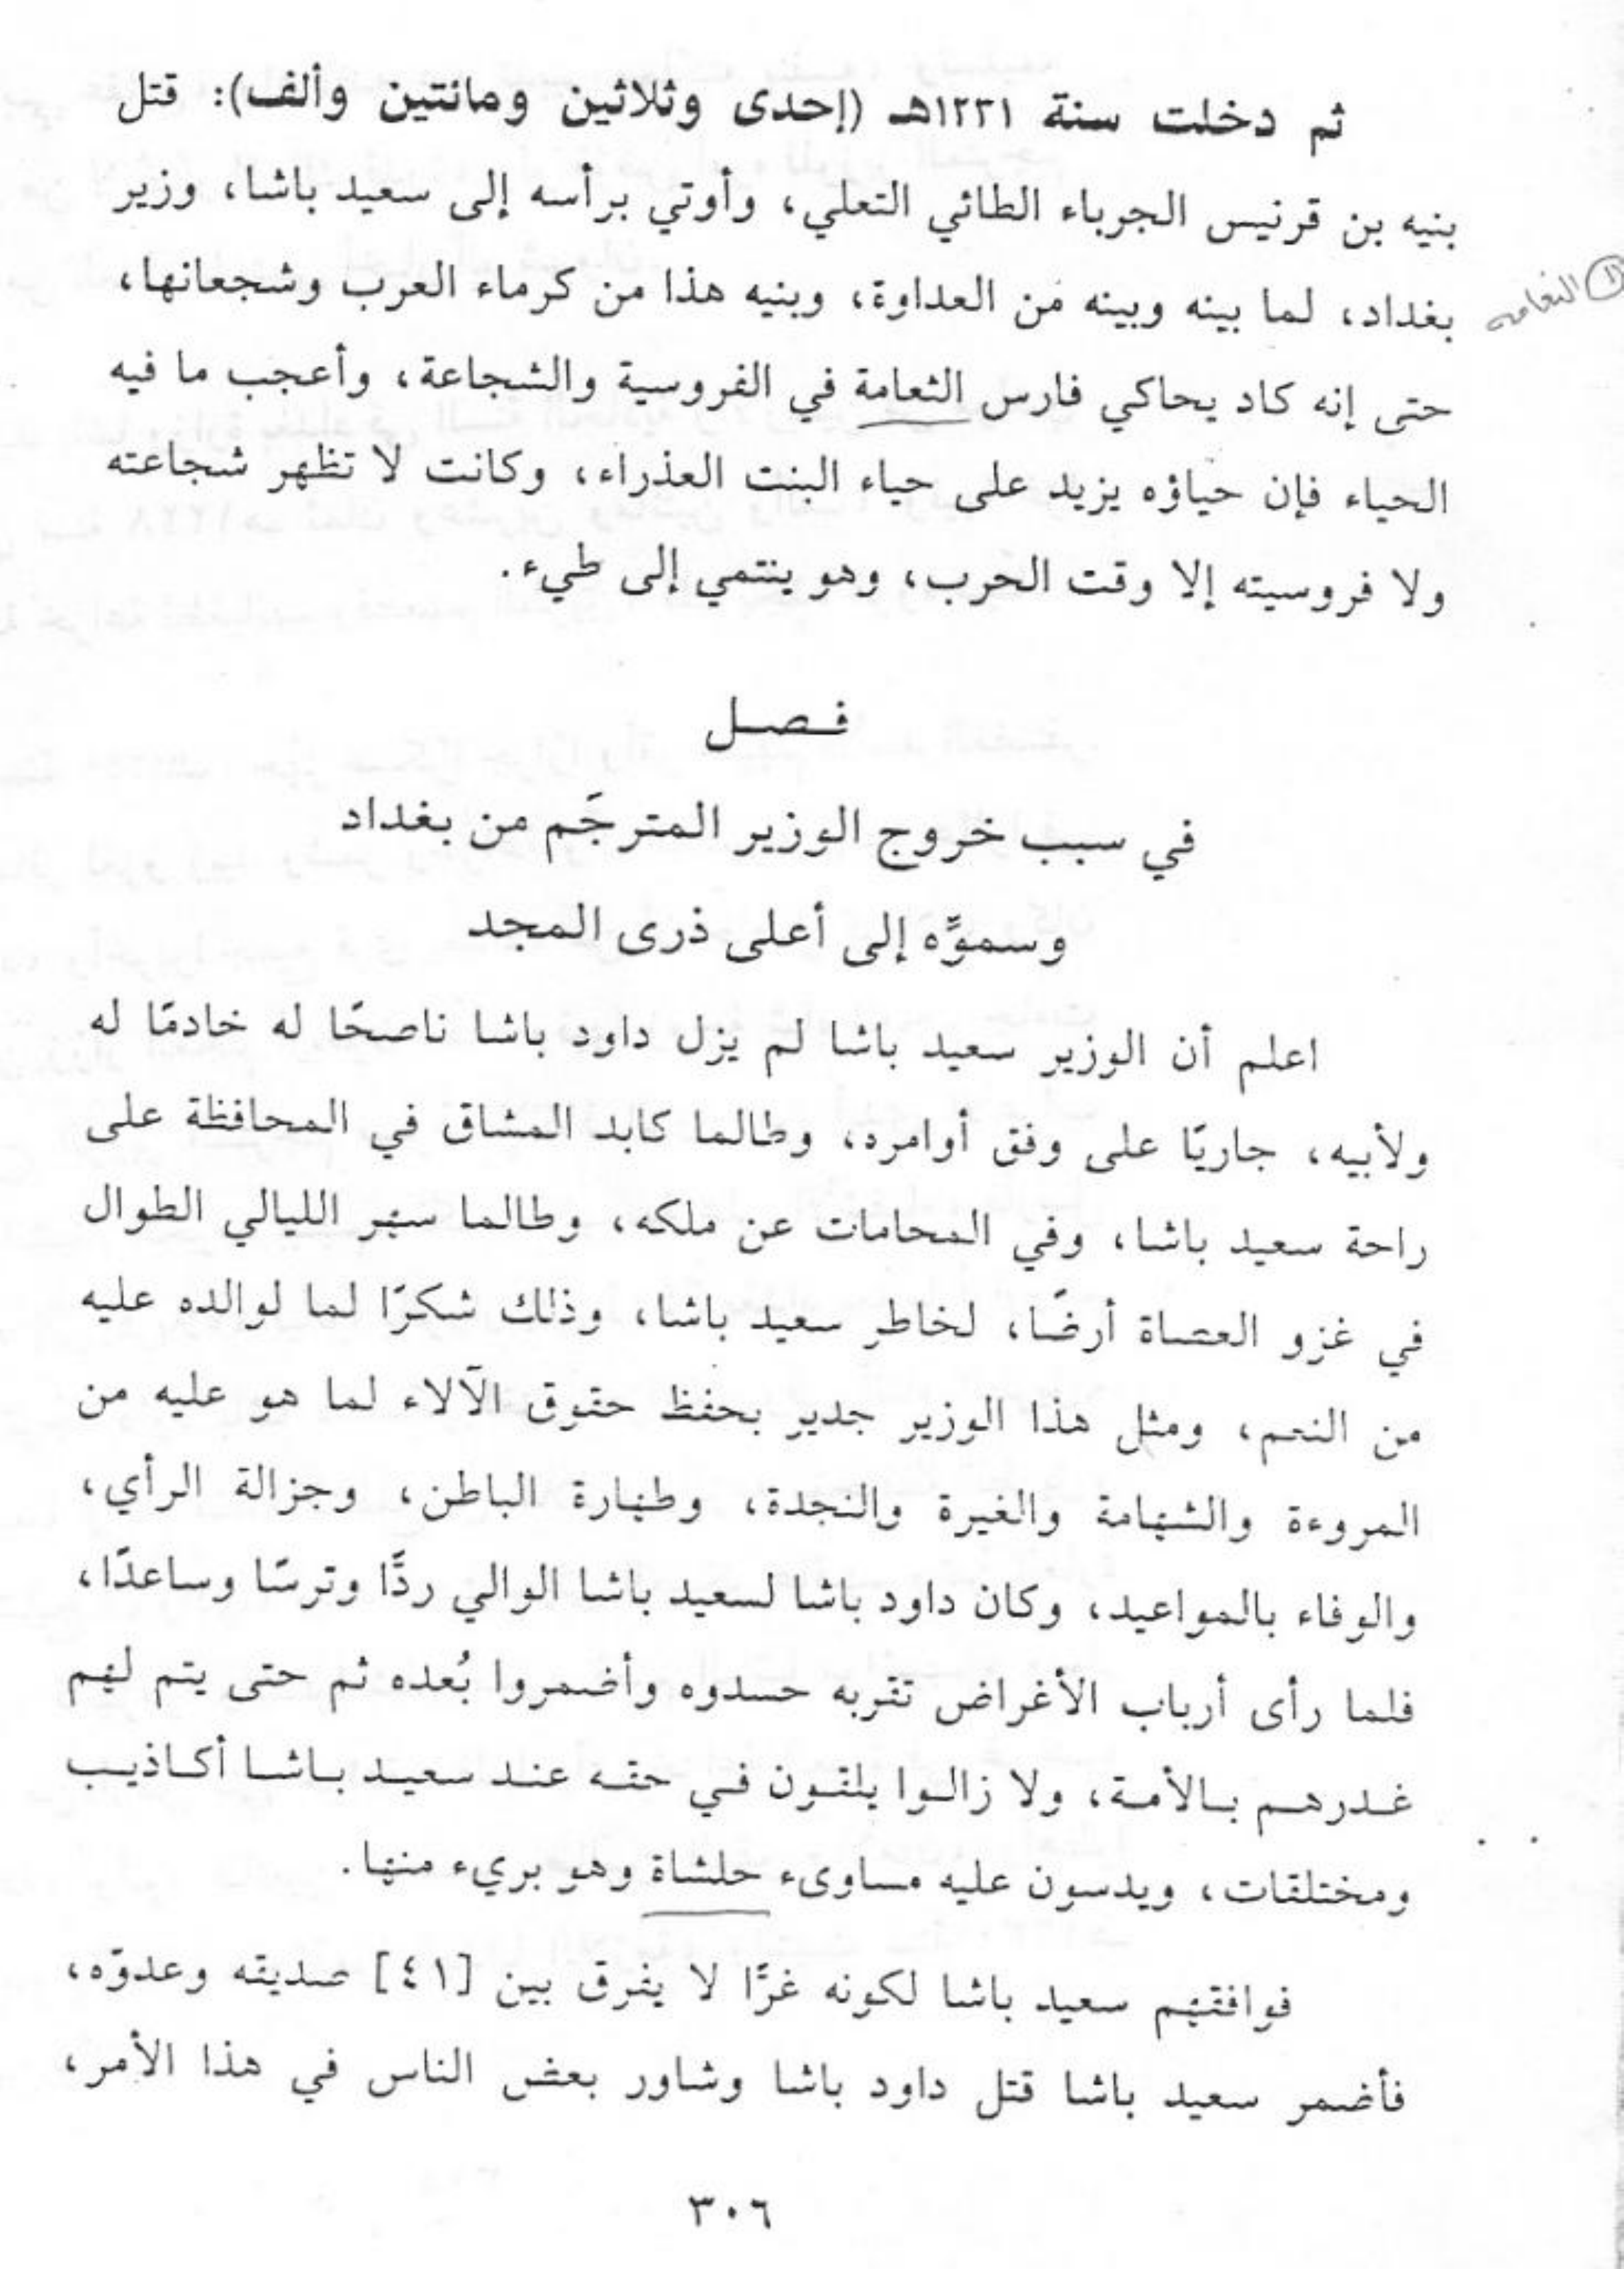 ثم دخلت سنة ١٢٣١هـ (إحدى وثلاثين ومائتين وألف): قتل
بنيه بن قرنيس الجرباء الطائي التعلي، وأوتي برأسه إلى سعيد باشا، وزير
بغداد، لما بينه وبينه من العداوة، وبنيه هذا من كرماء العرب وشجعانها،
① النعامه
حتى إنه كاد يحاكي فارس الثعامة في الفروسية والشجاعة، وأعجب ما فيه
الحياء فإن حياؤه يزيد على حياء البنت العذراء، وكانت لا تظهر شجاعته
ولا فروسيته إلا وقت الحرب، وهو ينتمي إلى طيء.
فـصـل
في سبب خروج الوزير المترجَم من بغداد
وسموِّه إلى أعلى ذرى المجد
اعلم أن الوزير سعيد باشا لم يزل داود باشا ناصحًا له خادمًا له
ولأبيه، جاريًا على وفق أوامره، وطالما كابد المشاق في المحافظة على
راحة سعيد باشا، وفي المحامات عن ملكه، وطالما سهر الليالي الطوال
في غزو العصاة أرضًا، لخاطر سعيد باشا، وذلك شكرًا لما لوالده عليه
من النعم، ومثل هذا الوزير جدير بحفظ حقوق الآلاء لما هو عليه من
المروءة والشهامة والغيرة والنجدة، وطهارة الباطن، وجزالة الرأي،
والوفاء بالمواعيد، وكان داود باشا لسعيد باشا الوالي ردًّا وترسًا وساعدًا،
فلما رأى أرباب الأغراض تقربه حسدوه وأضمروا بُعده ثم حتى يتم لهم
غـدرهـم بـالأمـة، ولا زالـوا يلقـون فـي حقـه عنـد سعيـد بـاشـا أكـاذيـب
ومختلقات، ويدسون عليه مساوىء حلشاة وهو بريء منها.
فوافقهم سعيد باشا لكونه غرًّا لا يفرق بين [٤١] صديقه وعدوّه،
فأضمر سعيد باشا قتل داود باشا وشاور بعض الناس في هذا الأمر،
٣٠٦